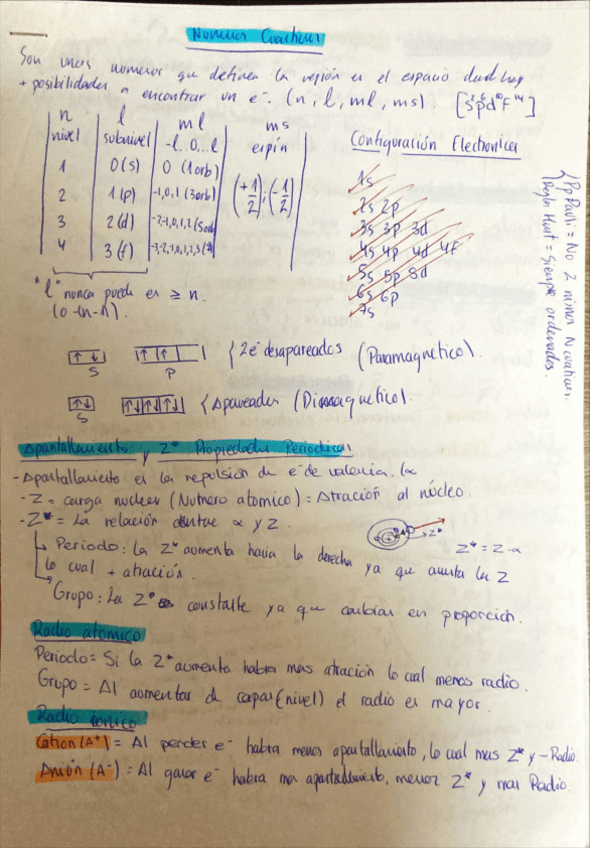 Numeros Cuanticos
Son unos numeros que definen la region en el espacio donde hay
+ posibilidades a encontrar un e⁻. (n, l, ml, ms) [s² p⁶ d¹⁰ F¹⁴]
n l ml ms
nivel subnivel -l..0...l espín
1 0(s) 0 (1orb)
2 1(p) -1,0,1 (3orb) (+1/2);(-1/2)
3 2(d) -2,-1,0,1,2 (5orb)
4 3(f) -3,-2,-1,0,1,2,3
"l" nunca puede es ≥ n.
(0-(n-1).
Configuración Electronica
1s
2s 2p
3s 3p 3d
4s 4p 4d 4F
5s 5p 5d
6s 6p
7s
Pp Pauli = No 2 mismos N cuanticos.
Regla Hund = Siempre ordenados.
↑↓ ↑ ↑ { 2e⁻ desapareados (Paramagnetico).
s p
↑↓ ↑↓ ↑↓ ↑↓ { Apareados (Diamagnetico).
s
Apantallamiento y Z* Propiedades Periodicas
- Apantallamiento es la repulsión de e⁻ de valencia.
- Z = carga nuclear (Numero atomico) = Atración al núcleo.
- Z* = La relación entre α y Z.
→ Z* Z* = Z-α
Periodo: la Z* aumenta hacia la derecha ya que aumenta la Z
lo cual + atración.
Grupo: La Z* es constante ya que cambian en proporción.
Radio atomico
Periodo = Si la Z* aumenta habra mas atración lo cual menos radio.
Grupo = Al aumentar de capas (nivel) el radio es mayor.
Radio ionico
Cation (A⁺) = Al perder e⁻ habra menos apantallamiento, lo cual mas Z* y - Radio.
Anión (A⁻) = Al ganar e⁻ habra mas apantallamiento, menor Z* y mas Radio.